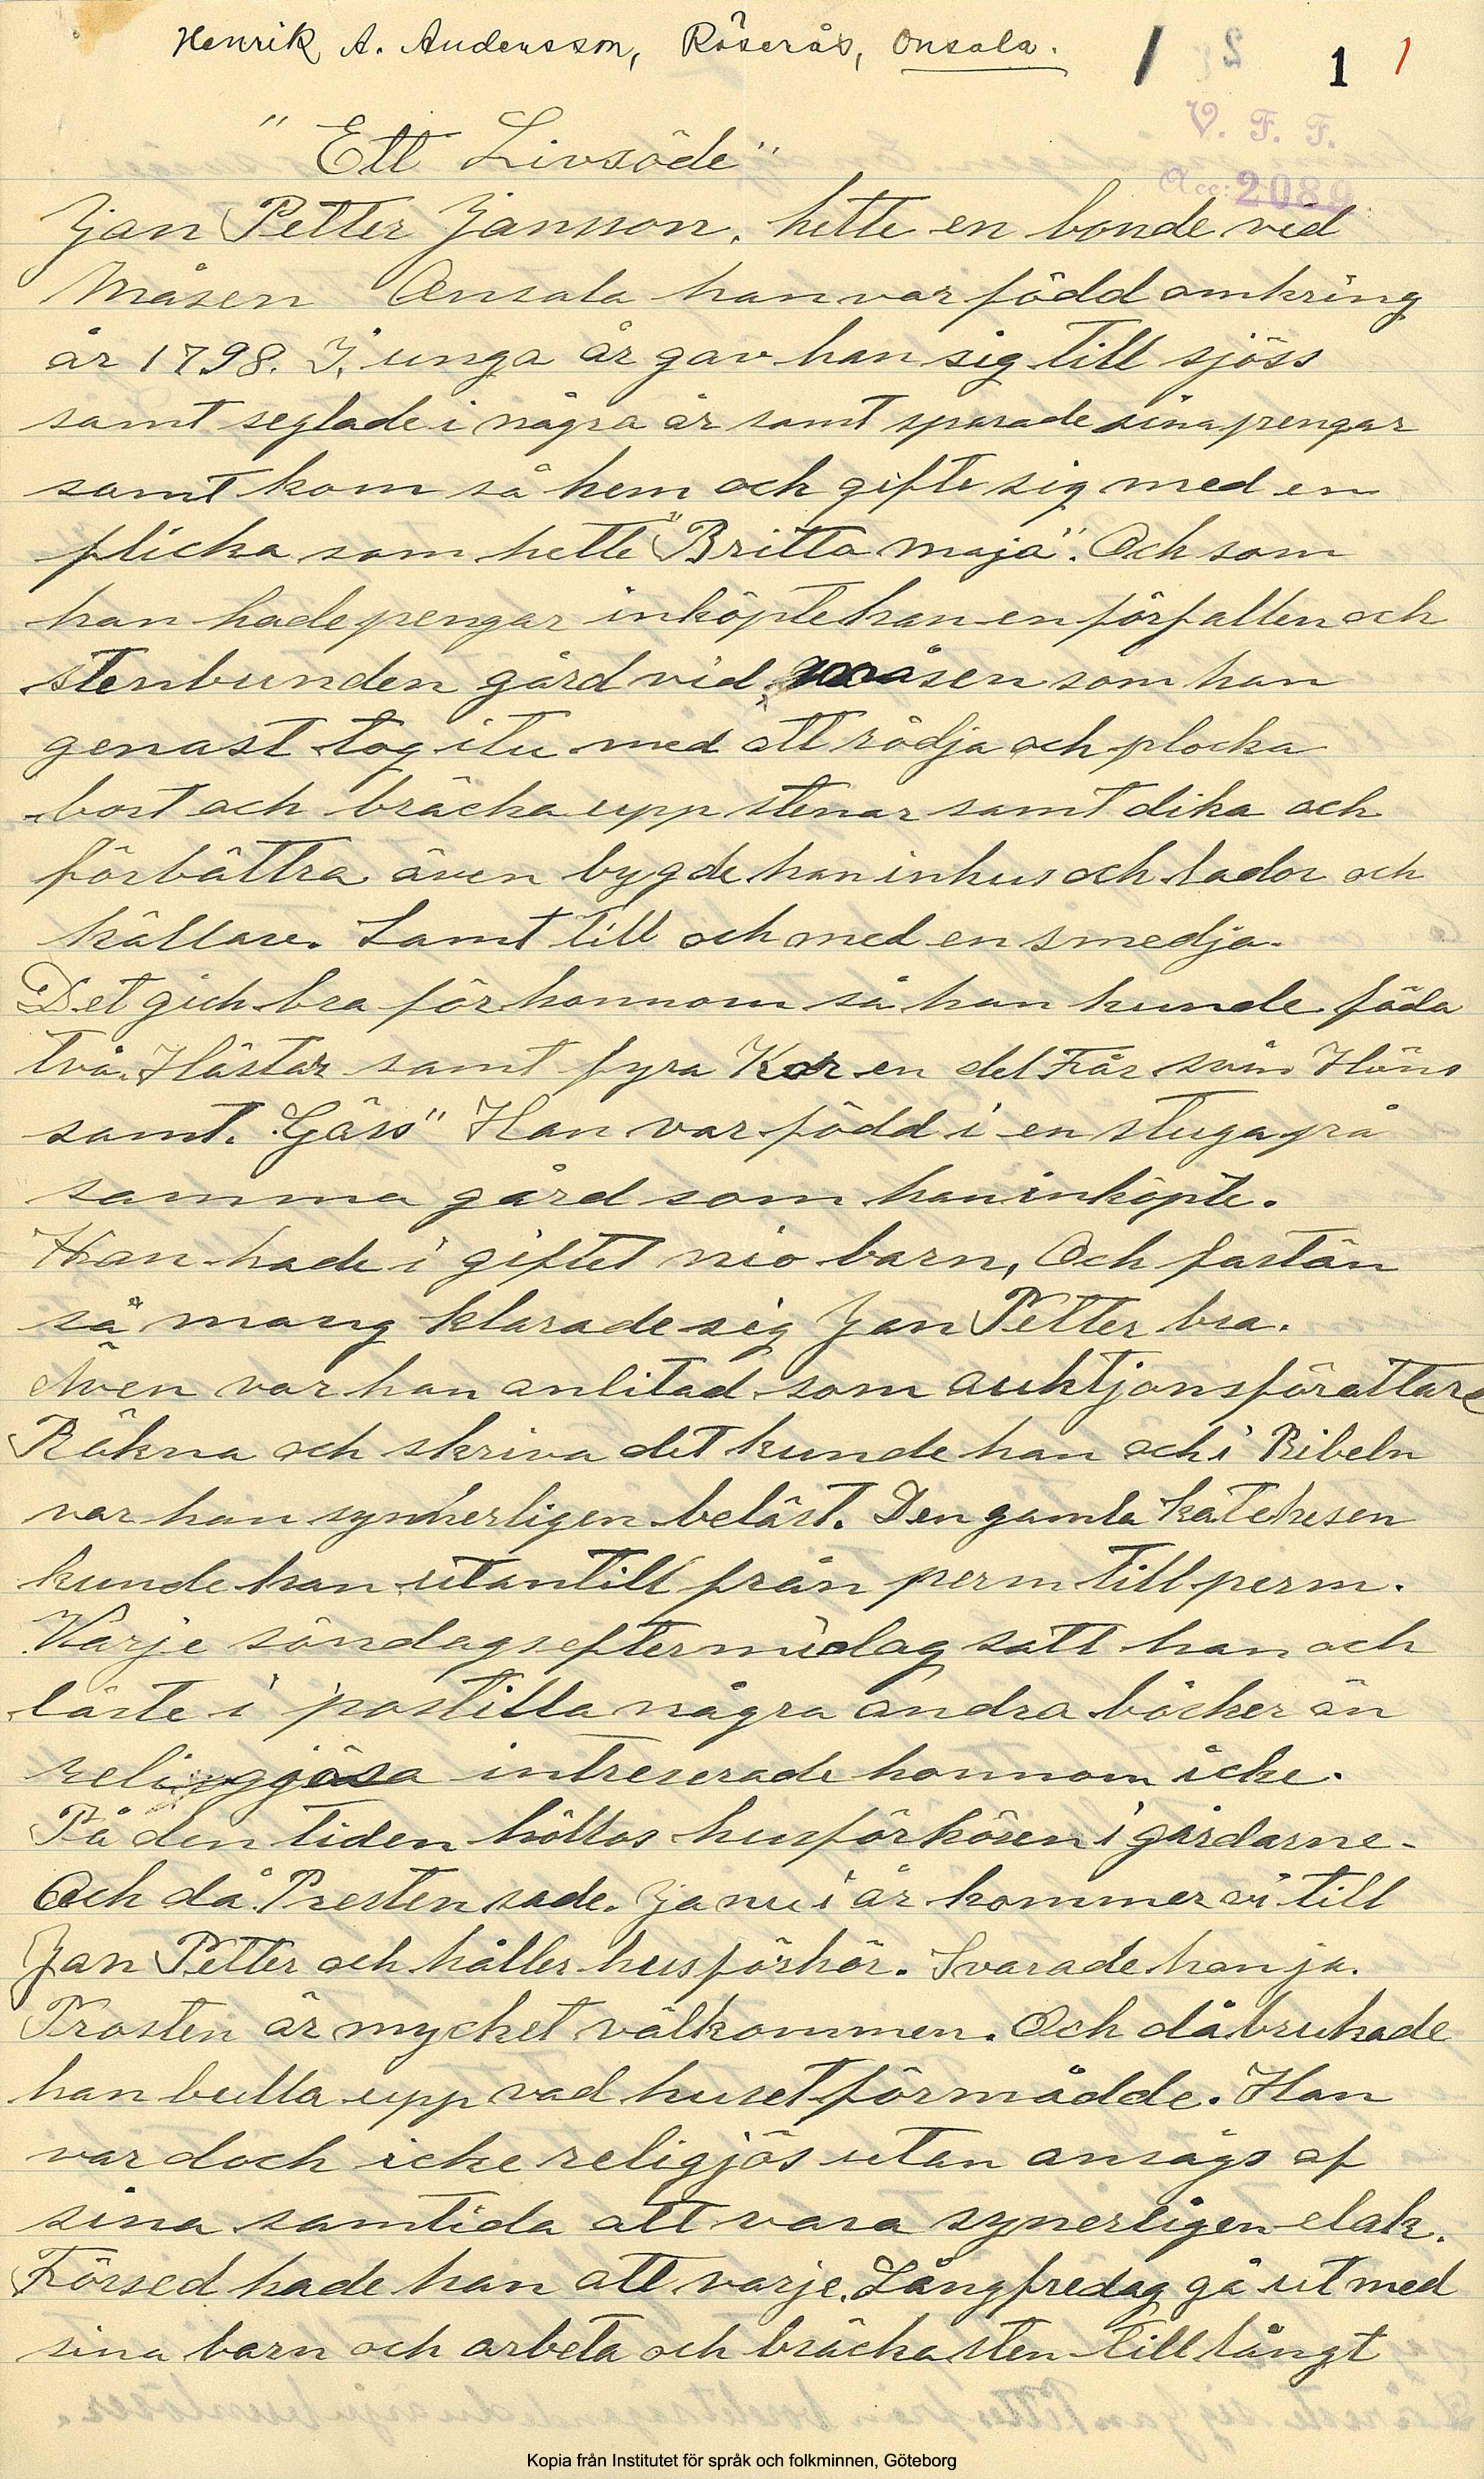 Henrik A. Andersson, Röserås, Onsala. 1 1 1
V. F. F.
"Ett Livsöde" Acc: 2089
Jan Petter Jansson. hette en bonde vid
Måsen Onsala han var född omkring
år 1798. I, unga år gav han sig till sjöss
samt seglade i några år samt sparade sina pengar
samt kom så hem och gifte sig med en
flicka som hette "Britta maja". Och som
han hade pengar inköpte han en förfallen och
stenbunden gård vid måsen som han
genast tog itu med att rödja och plocka
bort och bräcka upp stenar samt dika och
förbättra även bygde han inhus och lador och
källare. Samt till och med en smedja.
Det gich bra för honnom så han kunde föda
två. Hästar samt fyra Kor en del Får svin Höns
samt. "Gäss" Han var född i en stuga på
samma gård som han inköpte.
Han hade i giftet nio barn, Och fastän
så mang klarade sig Jan Petter bra.
Även var han anlitad som auktjonsförättare
Räkna och skriva det kunde han och i Bibeln
var han synnerligen beläst. Den gamla katekesen
kunde han utantill från perm till perm.
Varje söndagseftermidag satt han och
läste i postilla några andra böcker än
religgjösa intreserade honnom icke.
På den tiden höllos husförhören i gårdarne.
Och då Presten sade. Ja nu i år kommer vi till
Jan Petter och håller husförhör. Svarade han ja.
Prosten är mycket välkommen. Och då brukade
han bulla upp vad huset förmådde. Han
var doch icke religjös utan ansågs af
sina samtida att vara synerligen elak.
Försed hade han att varje. Långfredag gå ut med
sina barn och arbeta och bräcka sten till långt
Kopia från Institutet för språk och folkminnen, Göteborg